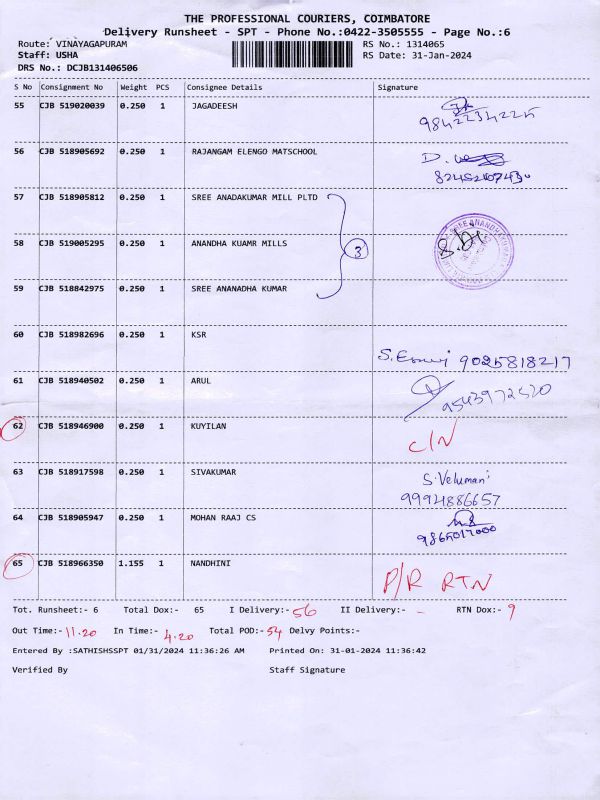 THE PROFESSIONAL COURIERS, COIMBATORE
Delivery Runsheet - SPT - Phone No.:0422-3505555 - Page No.:6
Route: VINAYAGAPURAM RS No.: 1314065
Staff: USHA RS Date: 31-Jan-2024
DRS No.: DCJB131406506
S No Consignment No Weight PCS Consignee Details Signature
55 CJB 519020039 0.250 1 JAGADEESH
9842234225
56 CJB 518905692 0.250 1 RAJANGAM ELENGO MATSCHOOL D.
57 CJB 518905812 0.250 1 SREE ANADAKUMAR MILL PLTD
58 CJB 519005295 0.250 1 ANANDHA KUAMR MILLS 3
59 CJB 518842975 0.250 1 SREE ANANADHA KUMAR
60 CJB 518982696 0.250 1 KSR
9025818217
61 CJB 518940502 0.250 1 ARUL
9543972520
62 CJB 518946900 0.250 1 KUYILAN C/N
63 CJB 518917598 0.250 1 SIVAKUMAR S. Velumani
9994886657
64 CJB 518905947 0.250 1 MOHAN RAAJ CS
9865017000
65 CJB 518966350 1.155 1 NANDHINI P/R RTN
Tot. Runsheet:- 6 Total Dox:- 65 I Delivery:- 56 II Delivery:- - RTN Dox:- 9
Out Time:- 11.20 In Time:- 4.20 Total POD:- 54 Delvy Points:-
Entered By :SATHISHSSPT 01/31/2024 11:36:26 AM Printed On: 31-01-2024 11:36:42
Verified By Staff Signature